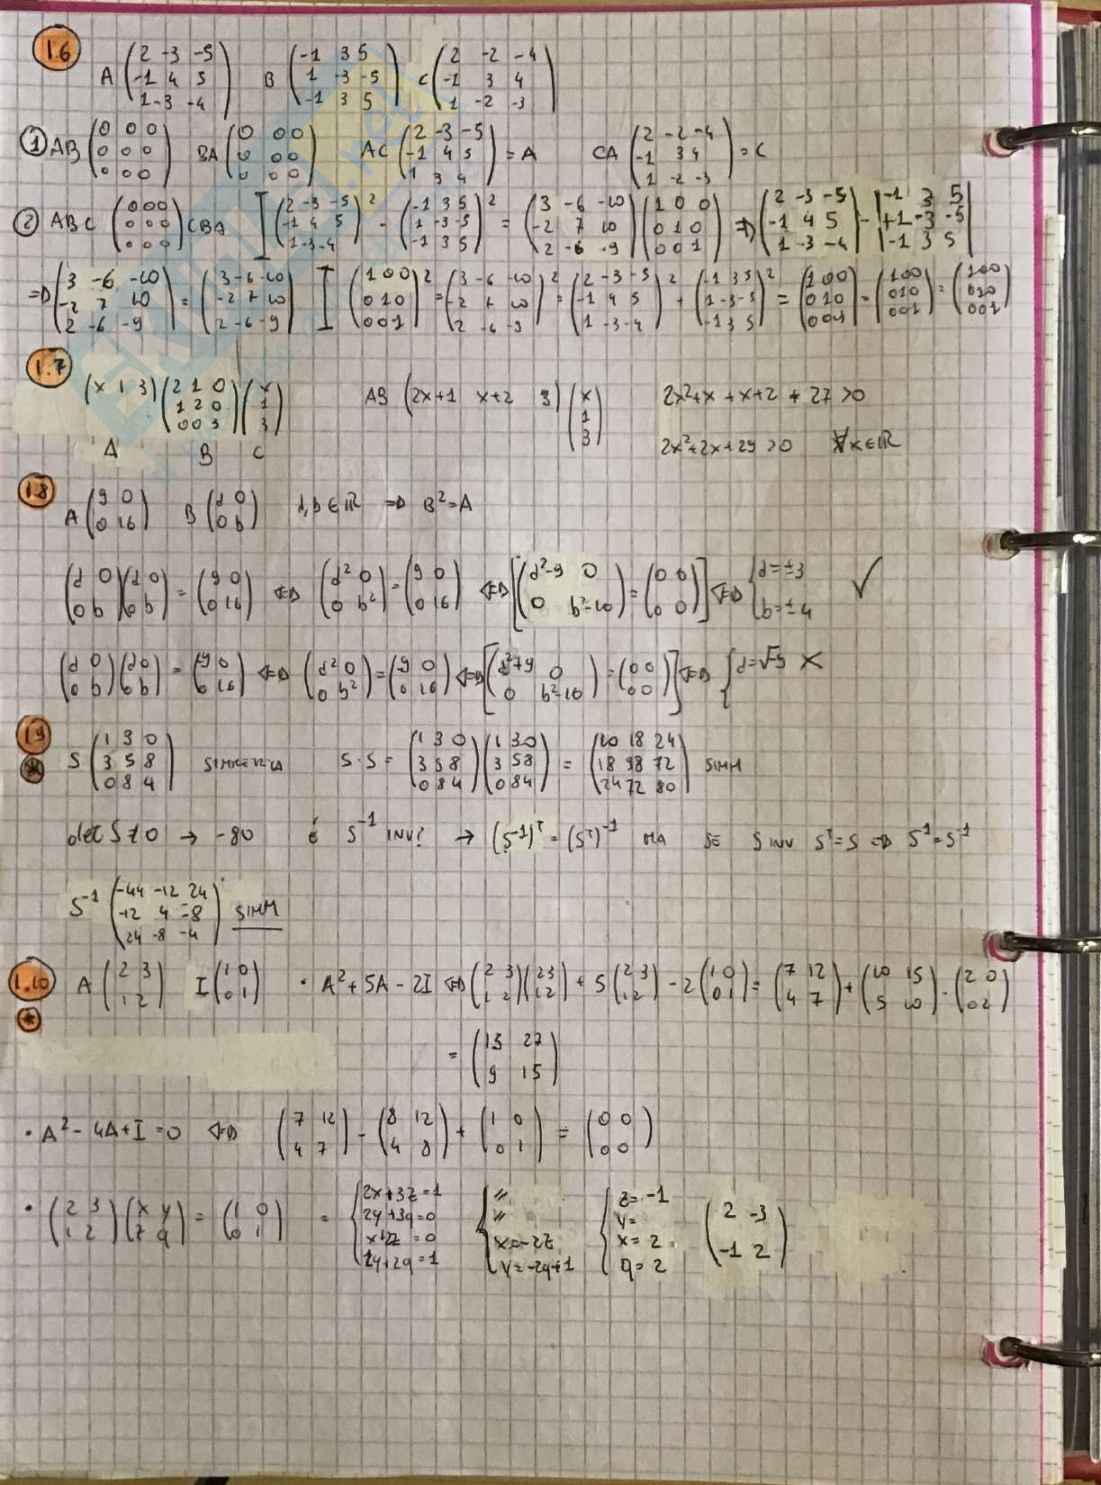 1.6 A (2 -3 -5 / -1 4 5 / 1 -3 -4) B (-1 3 5 / 1 -3 -5 / -1 3 5) C (2 -2 -4 / -1 3 4 / 1 -2 -3)
① AB (0 0 0 / 0 0 0 / 0 0 0) BA (0 0 0 / 0 0 0 / 0 0 0) AC (2 -3 -5 / -1 4 5 / 1 3 4) = A CA (2 -2 -4 / -1 3 4 / 1 -2 -3) = C
② ABC (0 0 0 / 0 0 0 / 0 0 0) CBA I (2 -3 -5 / -1 4 5 / 1 -3 -4)² - (-1 3 5 / 1 -3 -5 / -1 3 5)² = (3 -6 -10 / -2 7 10 / 2 -6 -9) (1 0 0 / 0 1 0 / 0 0 1) ⇒ (2 -3 -5 / -1 4 5 / 1 -3 -4) - (-1 3 5 / +1 -3 -5 / -1 3 5)
⇒ (3 -6 -10 / -2 7 10 / 2 -6 -9) = (3 -6 -10 / -2 7 10 / 2 -6 -9) I (1 0 0 / 0 1 0 / 0 0 1)² = (3 -6 -10 / -2 7 10 / 2 -6 -9)² = (2 -3 -5 / -1 4 5 / 1 -3 -4)² + (-1 3 5 / 1 -3 -5 / -1 3 5)² = (1 0 0 / 0 1 0 / 0 0 1) = (1 0 0 / 0 1 0 / 0 0 1) = (1 0 0 / 0 1 0 / 0 0 1)
1.7
(x 1 3) (2 1 0 / 1 2 0 / 0 0 3) (x / 1 / 3) AB (2x+1 x+2 9) (x / 1 / 3) 2x²+x+x+2+27>0
A B C 2x²+2x+29>0 ∀x∈ℝ
1.8 A (9 0 / 0 16) B (a 0 / 0 b) a,b∈ℝ ⇒ B²=A
(a 0 / 0 b)(a 0 / 0 b) = (9 0 / 0 16) ⇔ (a² 0 / 0 b²) = (9 0 / 0 16) ⇔ [(a²-9 0 / 0 b²-16) = (0 0 / 0 0)] ⇔ {a=±3 / b=±4 ✓
(a 0 / 0 b)(a 0 / 0 b) = (-9 0 / 0 16) ⇔ (a² 0 / 0 b²) = (-9 0 / 0 16) ⇔ [(a²+9 0 / 0 b²-16) = (0 0 / 0 0)] ⇔ {a=√-9 ✗
1.9 * S (1 3 0 / 3 5 8 / 0 8 4) SIMMETRICA S·S = (1 3 0 / 3 5 8 / 0 8 4)(1 3 0 / 3 5 8 / 0 8 4) = (10 18 24 / 18 98 72 / 24 72 80) SIMM
det S≠0 → -80 è S⁻¹ INV? → (S⁻¹)ᵀ=(Sᵀ)⁻¹ MA SE S INV Sᵀ=S ⇔ S⁻¹=S⁻¹
S⁻¹ (-44 -12 24 / -12 4 -8 / 24 -8 -4) SIMM
1.10 * A (2 3 / 1 2) I (1 0 / 0 1) • A²+5A-2I ⇔ (2 3 / 1 2)(2 3 / 1 2) + 5(2 3 / 1 2) - 2(1 0 / 0 1) = (7 12 / 4 7) + (10 15 / 5 10) - (2 0 / 0 2)
= (15 27 / 9 15)
• A²-4A+I=0 ⇔ (7 12 / 4 7) - (8 12 / 4 8) + (1 0 / 0 1) = (0 0 / 0 0)
• (2 3 / 1 2)(x y / z q) = (1 0 / 0 1) = {2x+3z=1 / 2y+3q=0 / x+2z=0 / 2y+2q=1 {// / // / x=-2z / y=-2q+1 {z=-1 / y= / x=2 / q=2 (2 -3 / -1 2)